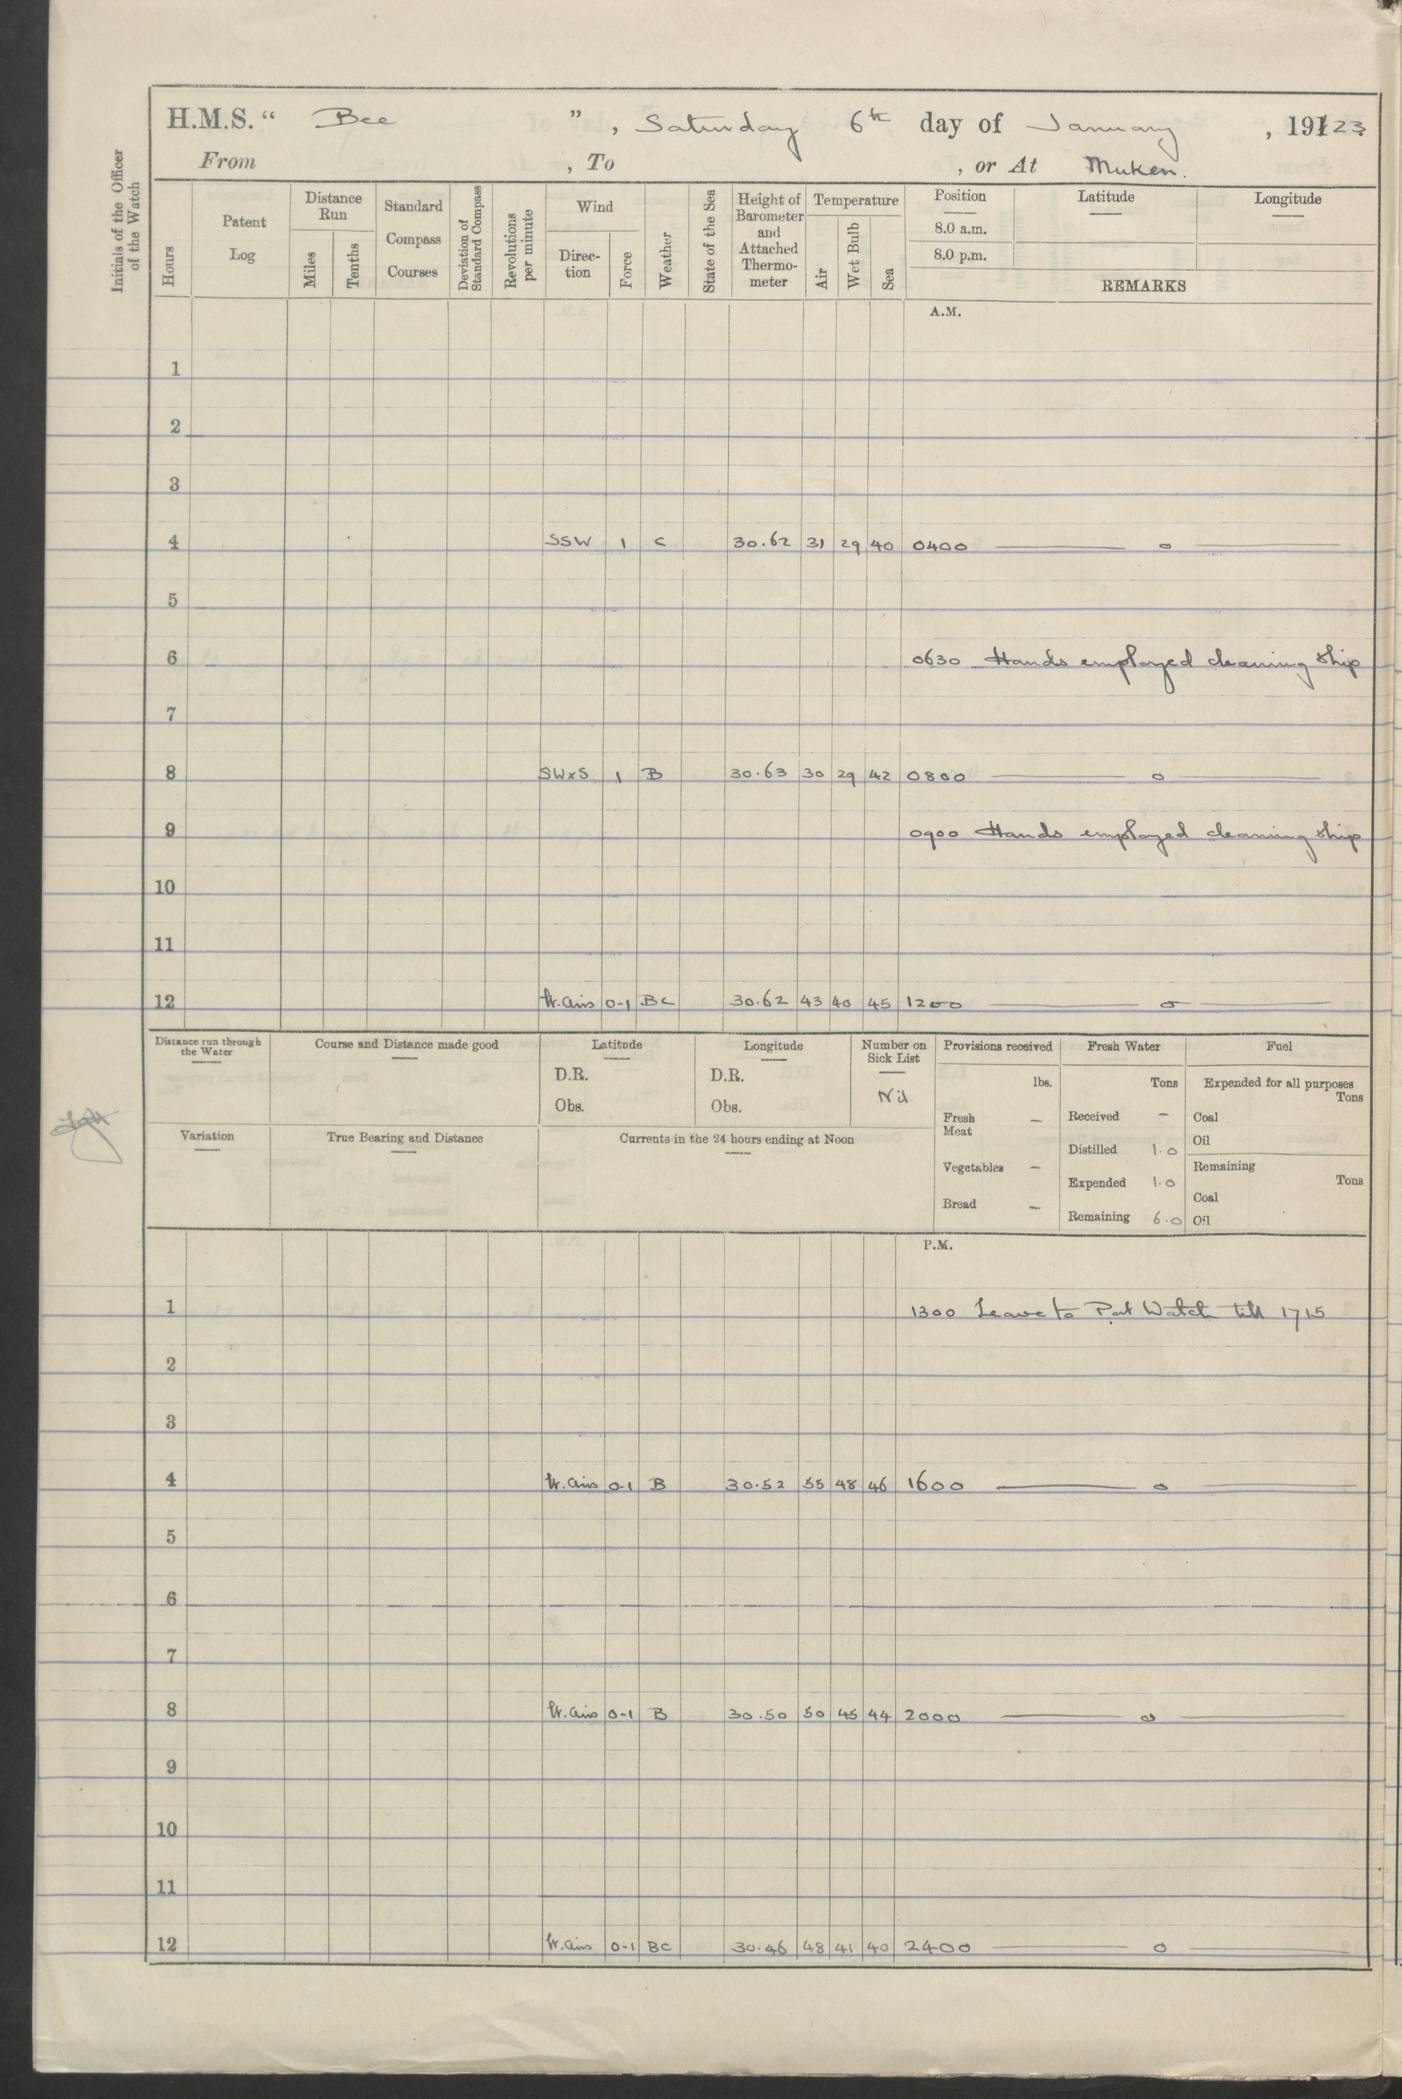 H.M.S. “ Bee ” , Saturday 6th day of January , 19123
From , To , or At Muken.
Initials of the Officer of the Watch
Hours
Patent Log
Distance Run
Miles
Tenths
Standard Compass Courses
Deviation of Standard Compass
Revolutions per minute
Wind
Direc-tion
Force
Weather
State of the Sea
Height of Barometer and Attached Thermo-meter
Temperature
Air
Wet Bulb
Sea
Position
8.0 a.m.
8.0 p.m.
Latitude
Longitude
REMARKS
A.M.
1
2
3
4 SSW 1 C 30.62 31 29 40 0400 —— o ——
5
6 0630 Hands employed cleaning ship
7
8 SWxS 1 B 30.63 30 29 42 0800 —— o ——
9 0900 Hands employed cleaning ship
10
11
12 lt. airs 0-1 BC 30.62 43 40 45 1200 —— o ——
Distance run through the Water
Course and Distance made good
Latitude
D.R.
Obs.
Longitude
D.R.
Obs.
Number on Sick List
Nil
Variation
True Bearing and Distance
Currents in the 24 hours ending at Noon
Provisions received
lbs.
Fresh Meat –
Vegetables –
Bread –
Fresh Water
Tons
Received –
Distilled 1.0
Expended 1.0
Remaining 6.0
Fuel
Expended for all purposes
Tons
Coal
Oil
Remaining
Tons
Coal
Oil
P.M.
1 1300 Leave to Port Watch till 1715
2
3
4 lt. airs 0-1 B 30.52 55 48 46 1600 —— o ——
5
6
7
8 lt. airs 0-1 B 30.50 50 45 44 2000 —— o ——
9
10
11
12 lt. airs 0-1 BC 30.46 48 41 40 2400 —— o ——